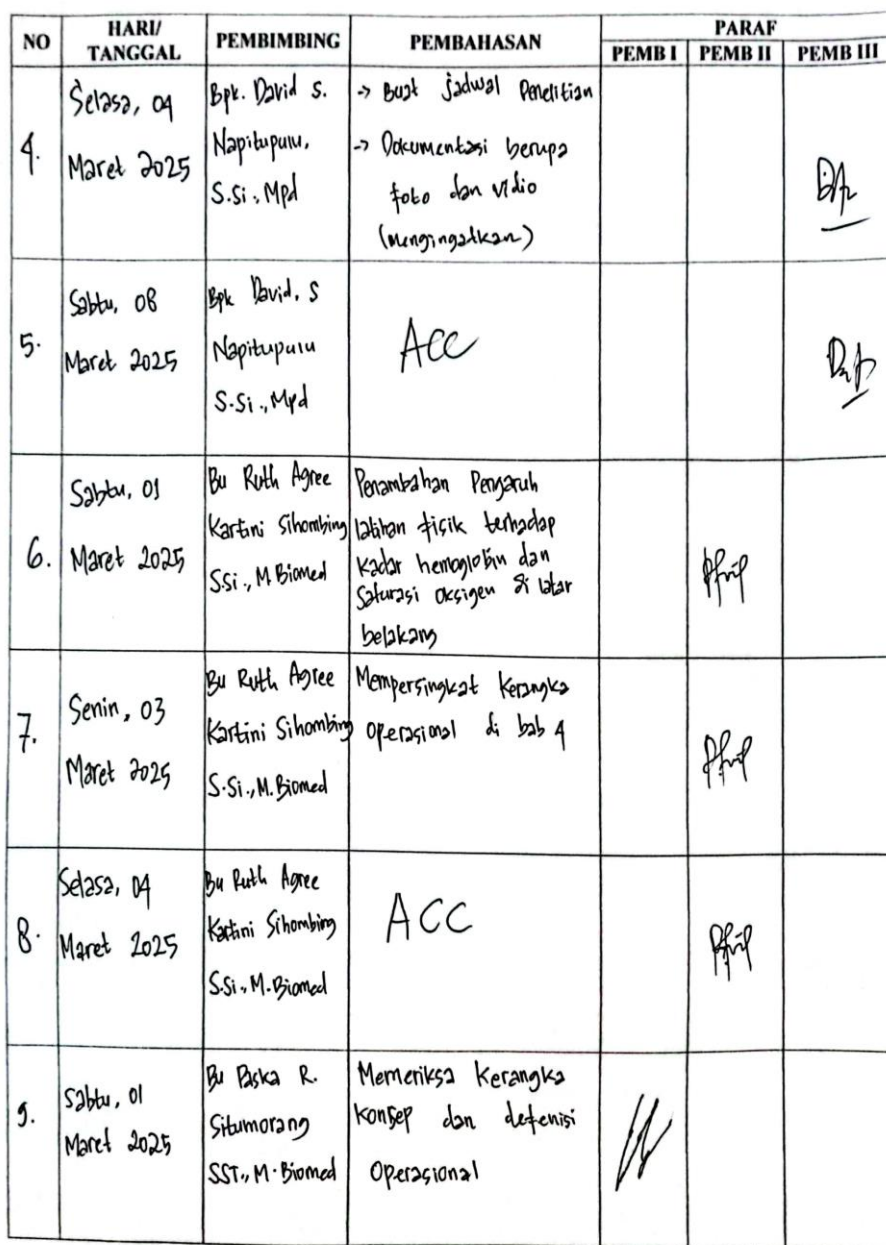 NO HARI/ TANGGAL PEMBIMBING PEMBAHASAN PARAF
PEMB I PEMB II PEMB III
4.
Selasa, 04
Maret 2025
Bpk. David S.
Napitupulu,
S.Si., Mpd
-> Buat jadwal Penelitian
-> Dokumentasi berupa
foto dan vidio
(mengingatkan)
5.
Sabtu, 08
Maret 2025
Bpk David, S
Napitupulu
S.Si., Mpd
ACC
6.
Sabtu, 01
Maret 2025
Bu Ruth Agree
Kartini Sihombing
SSi., M Biomed
Penambahan Pengaruh
latihan fisik terhadap
Kadar hemoglobin dan
Saturasi oksigen di latar
belakang
7.
Senin, 03
Maret 2025
Bu Ruth Agree
Kartini Sihombing
S.Si., M.Biomed
Mempersingkat Kerangka
Operasional di bab 4
8.
Selasa, 04
Maret 2025
Bu Ruth Agree
Kartini Sihombing
S.Si., M.Biomed
ACC
9.
Sabtu, 01
Maret 2025
Bu Paska R.
Situmorang
SST., M.Biomed
Memeriksa Kerangka
Konsep dan defenisi
Operasional